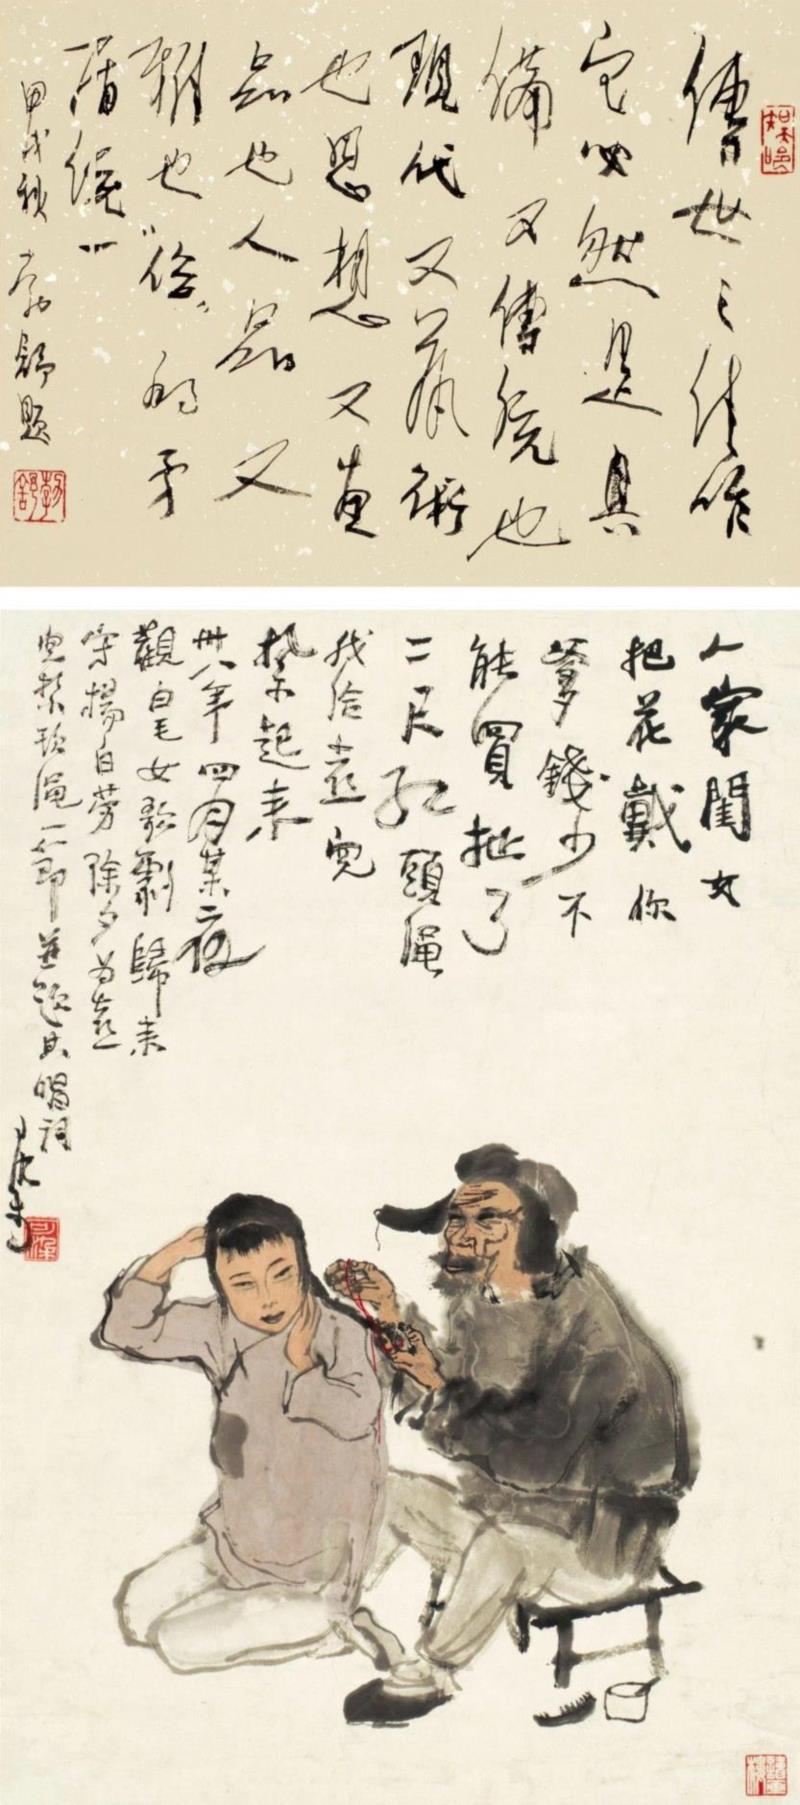 傳世之佳作
它必然是具
備又傳統也
現代又藝術
也思想又畫
品也人品又
雅也“俗”的矛
盾統一
甲戌秋 勃舒題
勃舒
人家閨女
把花戴你
爹錢少不
能買扯了
二尺紅頭繩
我給喜兒
紮起來
卅八年四月某夜
觀白毛女歌劇歸來
寫楊白勞除夕為喜
兒紮頭繩一節並題其唱詞